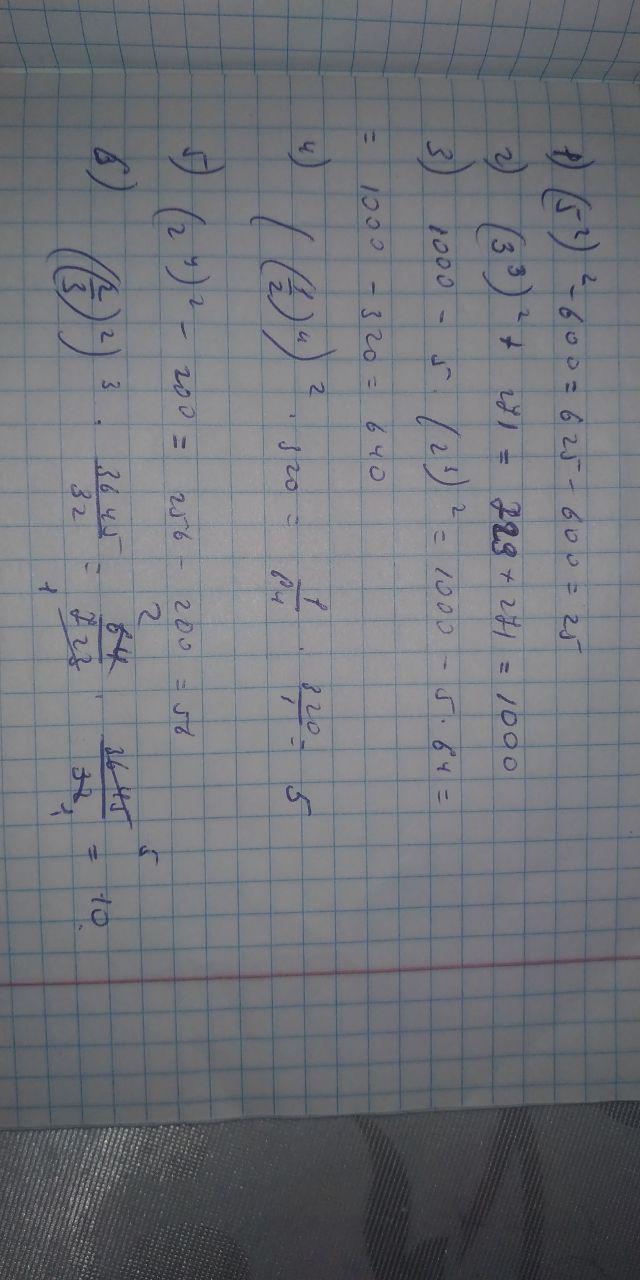 1) (5²)² - 600 = 625 - 600 = 25
2) (3³)² + 271 = 729 + 271 = 1000
3) 1000 - 5 · (2³)² = 1000 - 5 · 64 =
= 1000 - 320 = 640
4) ((1/2)⁴)² · 320 = 1/64 · 320/1 = 5
5) (2⁴)² - 200 = 256 - 200 = 56
6) ((2/3)²)³ · 3645/32 = 64/729 · 3645/32 = 10